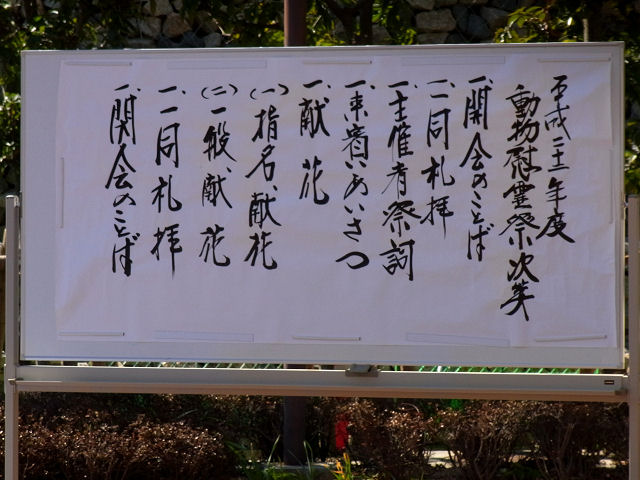 平成二十一年度
動物慰霊祭次第
一、開会のことば
一、一同礼拝
一、主催者祭詞
一、来賓ごあいさつ
一、献花
(一)指名、献花
(二)一般、献花
一、一同礼拝
一、閉会のことば